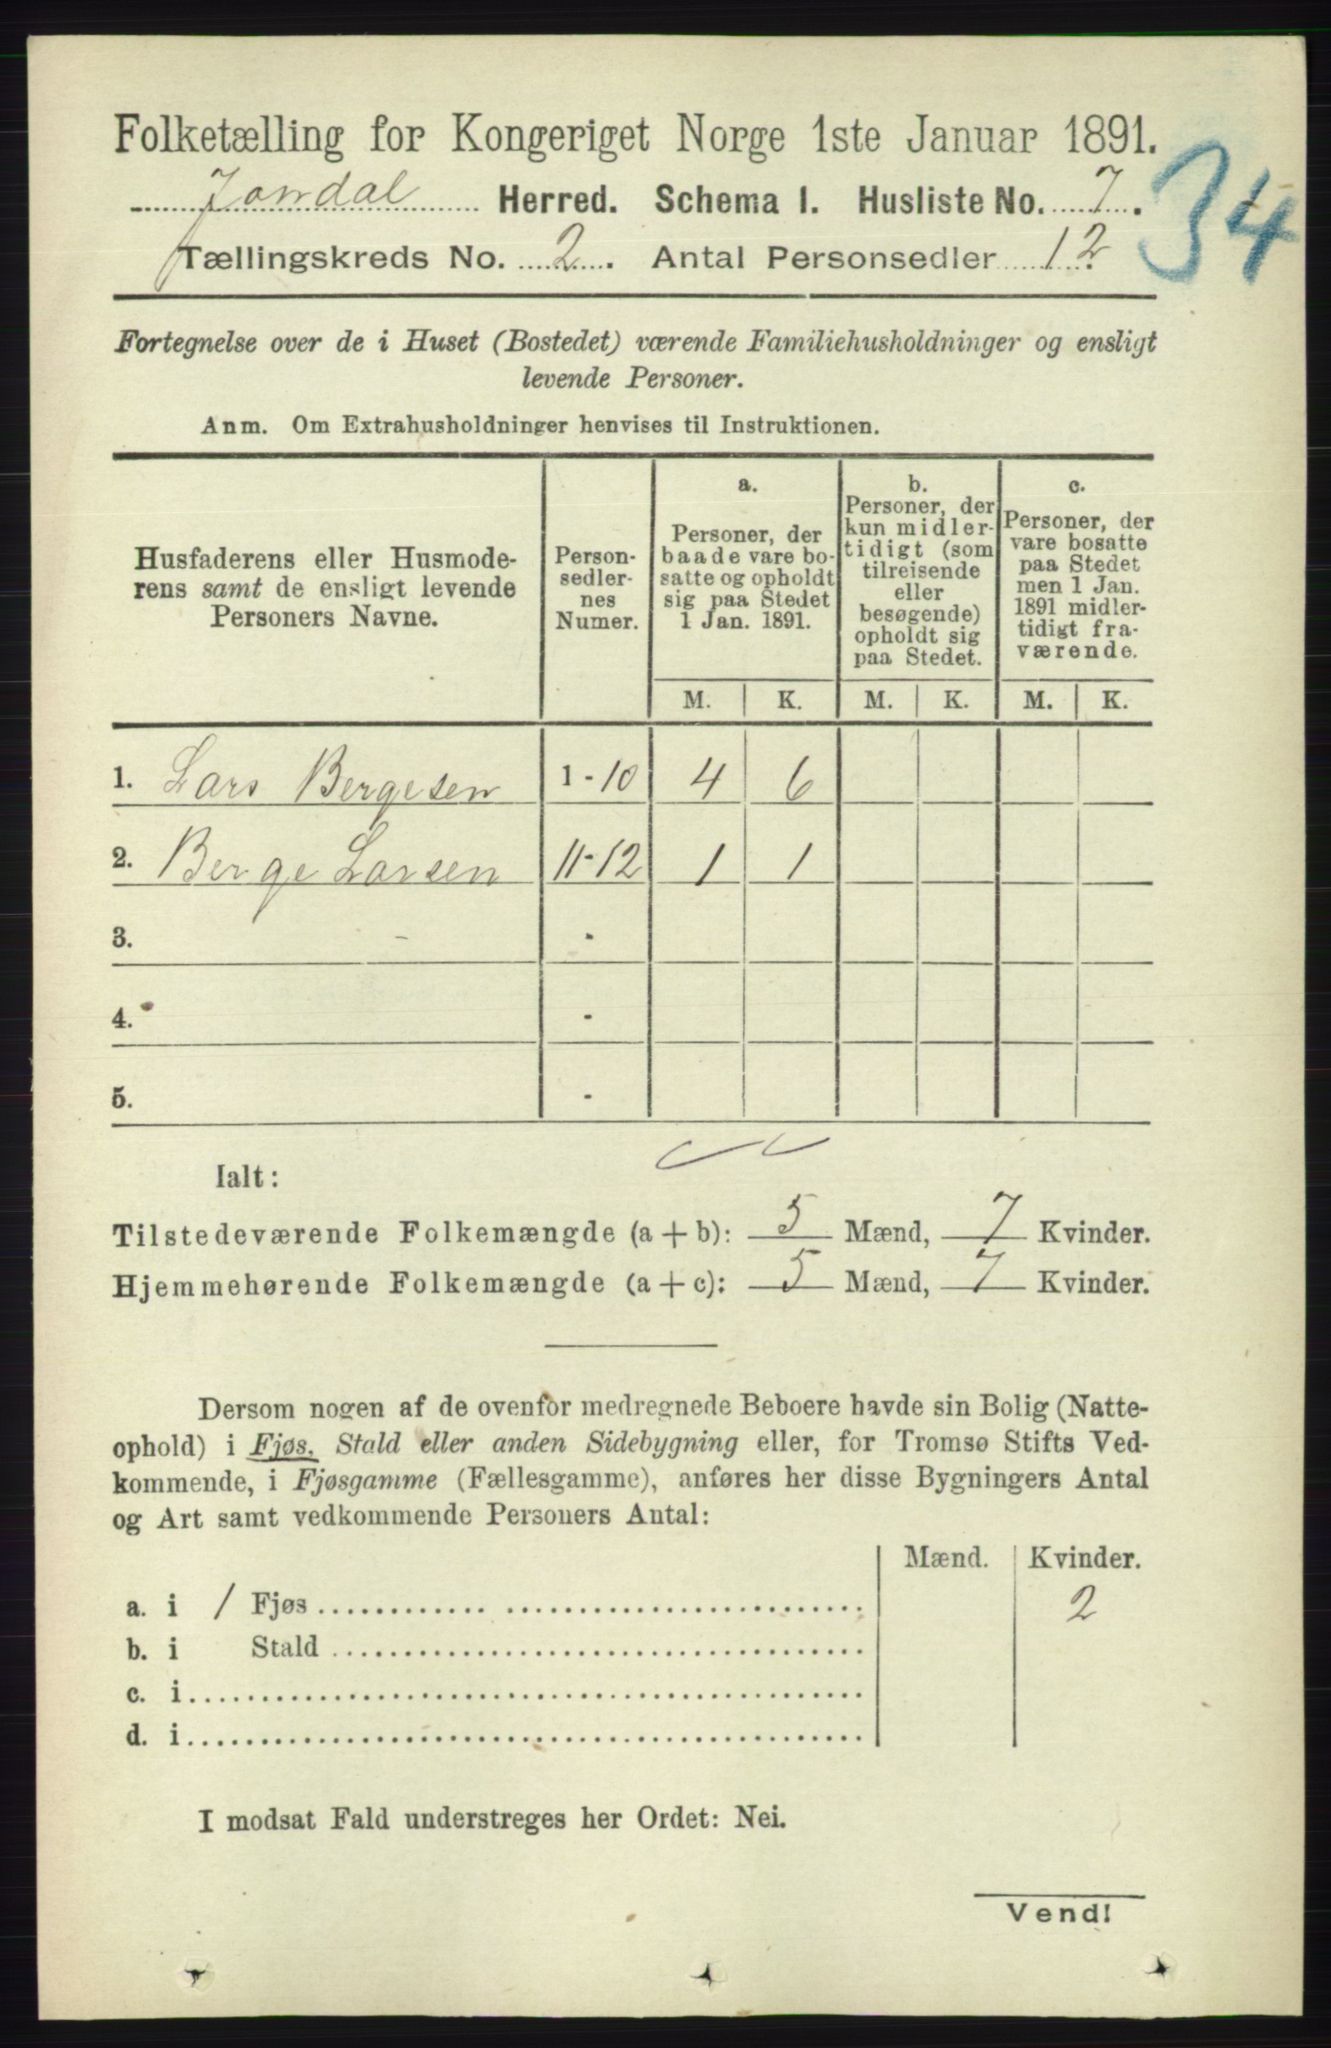 Folketælling for Kongeriget Norge 1ste Januar 1891.
34
Jondal Herred. Schema I. Husliste No. 7.
Tællingskreds No. 2. Antal Personsedler 12.
Fortegnelse over de i Huset (Bostedet) værende Familiehusholdninger og ensligt
levende Personer.
Anm. Om Extrahusholdninger henvises til Instruktionen.
Husfaderens eller Husmode-
rens samt de ensligt levende
Personers Navne.
Person-
sedler-
nes
Numer.
a.
Personer, der
baade vare bo-
satte og opholdt
sig paa Stedet
1 Jan. 1891.
b.
Personer, der
kun midler-
tidigt (som
tilreisende
eller
besøgende)
opholdt sig
paa Stedet.
c.
Personer, der
vare bosatte
paa Stedet
men 1 Jan.
1891 midler-
tidigt fra-
værende.
M. K. M. K. M. K.
1. Lars Bergesen 1-10 4 6
2. Berge Larsen 11-12 1 1
3. -
4. -
5. -
Ialt:
Tilstedeværende Folkemængde (a + b): 5 Mænd, 7 Kvinder.
Hjemmehørende Folkemængde (a + c): 5 Mænd, 7 Kvinder.
Dersom nogen af de ovenfor medregnede Beboere havde sin Bolig (Natte-
ophold) i Fjøs, Stald eller anden Sidebygning eller, for Tromsø Stifts Ved-
kommende, i Fjøsgamme (Fællesgamme), anføres her disse Bygningers Antal
og Art samt vedkommende Personers Antal:
Mænd. Kvinder.
a. i 1 Fjøs 2
b. i Stald
c. i
d. i
I modsat Fald understreges her Ordet: Nei.
Vend!